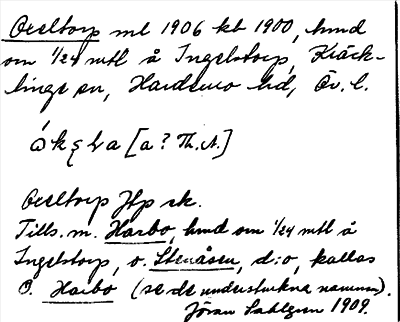 Oxeltorp ml 1906 kb 1900, hmd
om 1/24 mtl å Ingelstorp, Kräck-
linge sn, Hardemo hd, Ör. l.
[a? Th. A.]
Oxeltorp Jfp sk.
Tills. m. Harbo, hmd om 1/24 mtl å
Ingelstorp, o. Stenåsen, d:o, kallas
O. Harbo (se de understrukna namnen).
Jöran Sahlgren 1909.